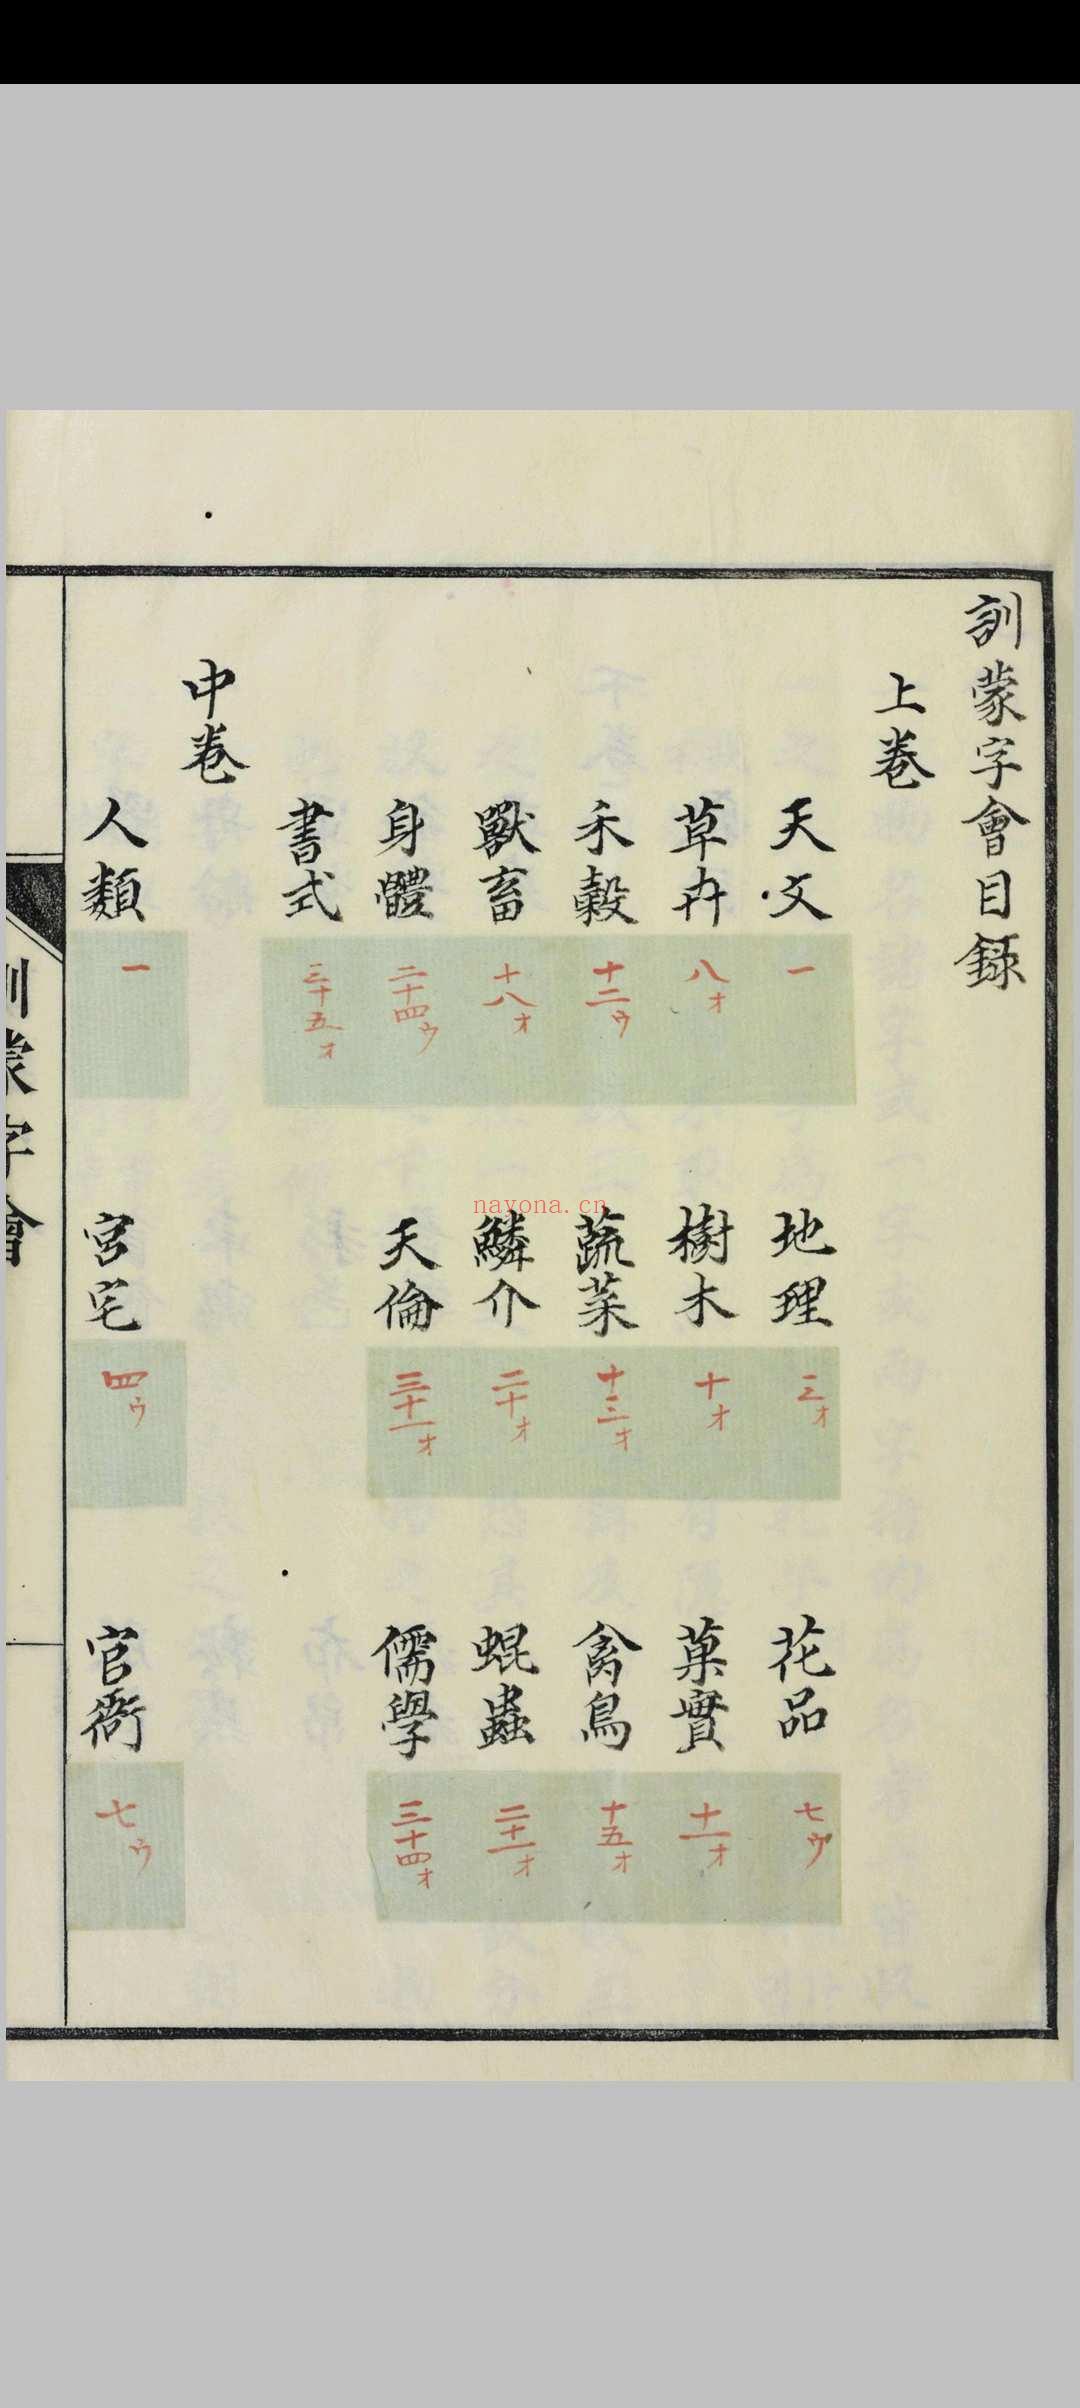 訓蒙字會目録
上卷
天文 一
地理 三オ
花品 七ウ
草卉 八オ
樹木 十オ
菓實 十一オ
禾穀 十二ウ
蔬菜 十三オ
禽鳥 十五オ
獸畜 十八オ
鱗介 二十オ
蜫蟲 二十一オ
身體 二十四ウ
天倫 三十一オ
儒學 三十四オ
書式 三十五オ
中卷
人類 一
宮宅 四ウ
官衙 七ウ
訓蒙字會
nayona.cn